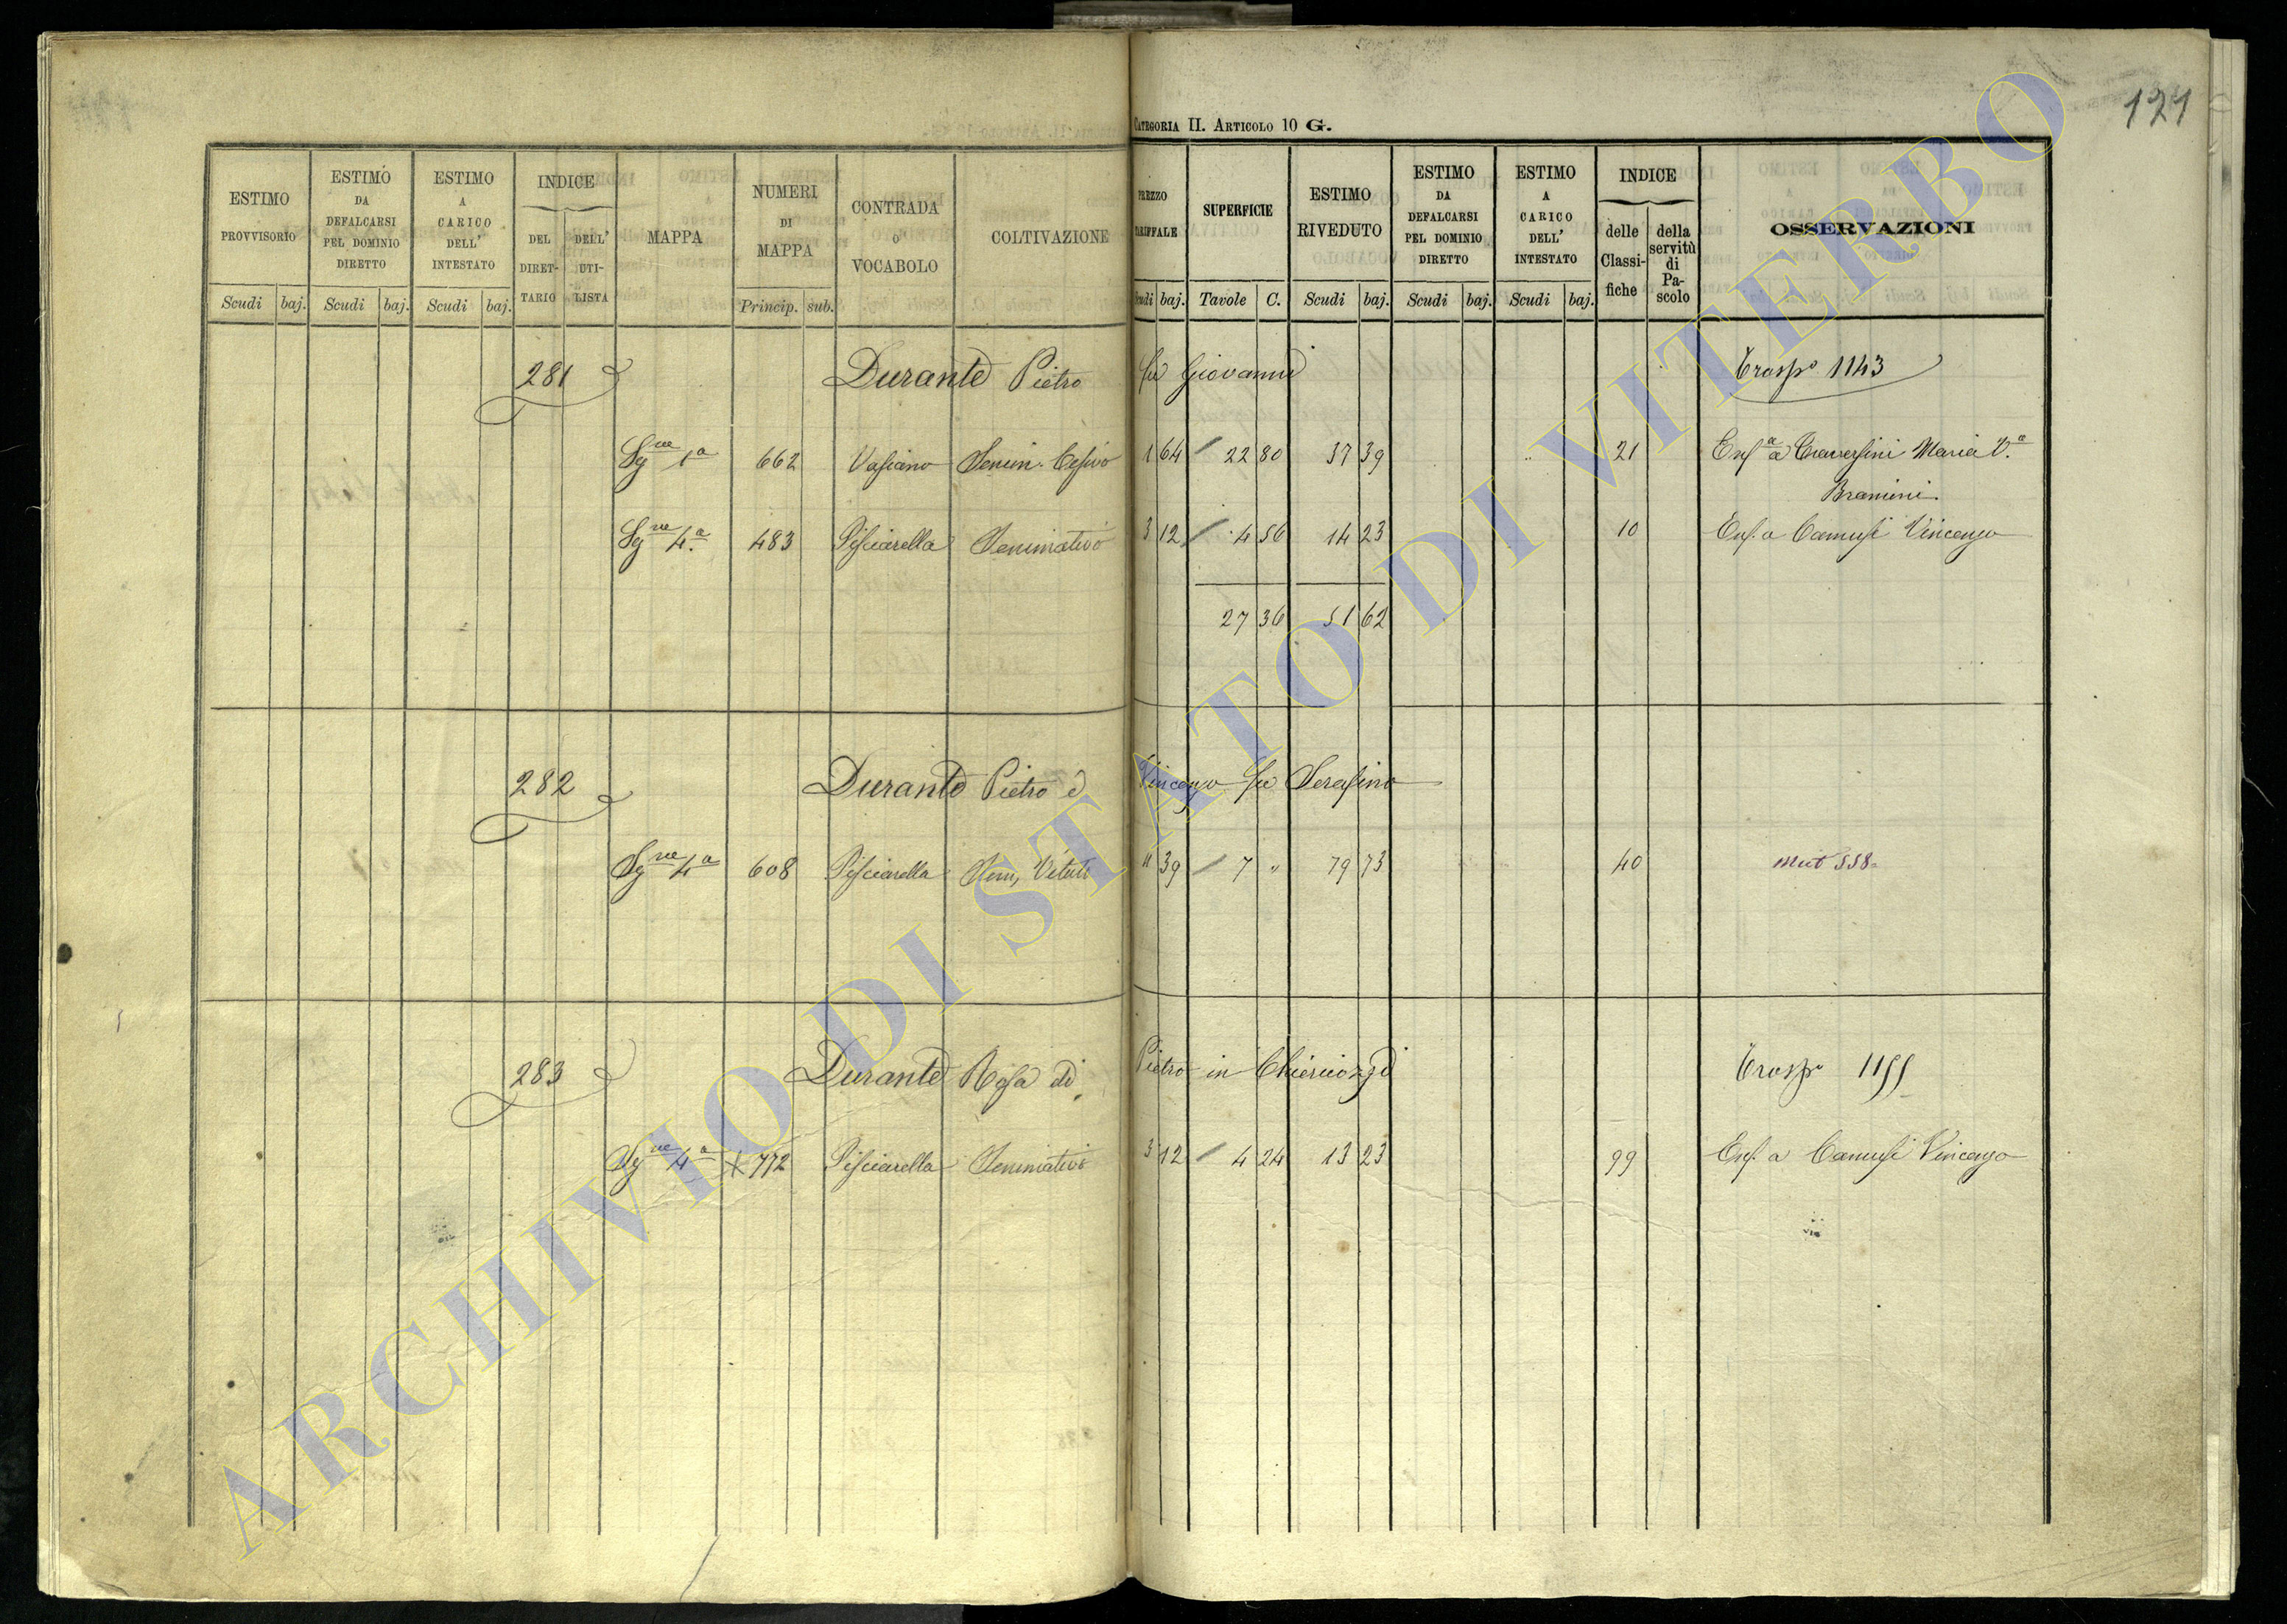 121
CATEGORIA II. ARTICOLO 10 G.
ESTIMO PROVVISORIO Scudi baj.
ESTIMO DA DEFALCARSI PEL DOMINIO DIRETTO Scudi baj.
ESTIMO A CARICO DELL' INTESTATO Scudi baj.
INDICE DEL DIRETTARIO DELL' UTILISTA
MAPPA
NUMERI DI MAPPA Princip. sub.
CONTRADA O VOCABOLO
COLTIVAZIONE
PREZZO TARIFFALE Scudi baj.
SUPERFICIE Tavole C.
ESTIMO RIVEDUTO Scudi baj.
ESTIMO DA DEFALCARSI PEL DOMINIO DIRETTO Scudi baj.
ESTIMO A CARICO DELL' INTESTATO Scudi baj.
INDICE delle Classifiche della servitù di Pascolo
OSSERVAZIONI
281 Durante Pietro fu Giovanni Trasp.o 1143
Sg.ne 1a 662 Vasiano Semin. Cesivo 1 64 22 80 37 39 21 Enf.a a Traversini Maria V.a
Bramini
Sg.ne 4.a 483 Pisciarella Seminativo 3 12 4 56 14 23 10 Enf. a Camusi Vincenzo
27 36 51 62
282 Durante Pietro e Vincenzo fu Serafino
Sg.ne 4a 608 Pisciarella Sem, Vitato 11 39 7 " 79 73 40 Mut 558
283 Durante Rosa di Pietro in Chiericozzi Trasp.o 1155
Sg.ne 4a 772 Pisciarella Seminativo 3 12 4 24 13 23 99 Enf. a Camusi Vincenzo
ARCHIVIO DI STATO DI VITERBO